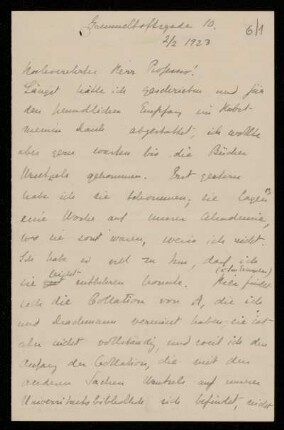 Gammeltoftsgade 10.
2/2 1923
6/1
Hochverehrter Herr Professor!
Längst hätte ich geschrieben und für
den freundlichen Empfang im Herbst
meinen Dank abgestattet, ich wollte
aber gern warten bis die Bücher
gekommen. Erst gestern
habe ich sie bekommen, sie lagen
eine Woche auf unserer Akademie,
wo sie sonst waren, weiss ich nicht.
Ich habe es erst zu tun, dass ich
sie leicht entbehren konnte.
noch die Collation von A, die ich
und Drachmann vermisst haben; sie ist
aber nicht vollständig, und soweit ich den
Anfang der Collation, die mit den
anderen Sachen auf unserer
Universitätsbibliothek sich befindet, nicht